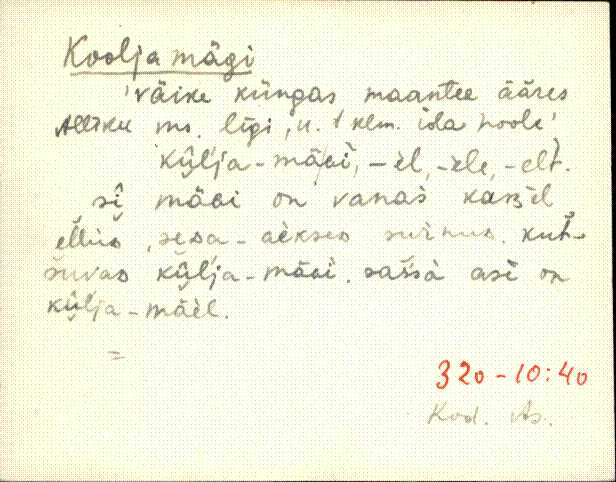 Koolja mägi
'väike küngas maantee ääres
Allιku ms. ligi, u. 1 klm. ida poole'
kǖl'ja-mäGi, -èl, -ele, -elt.
sī mäGi on vanàs
ellùs, seDa-aèkseD surnuD. kut-
suvaD kǖl'ja-mäGi. sassà asi on
kǖl'ja-mäèl.
=
320-10:40
Kod. As.